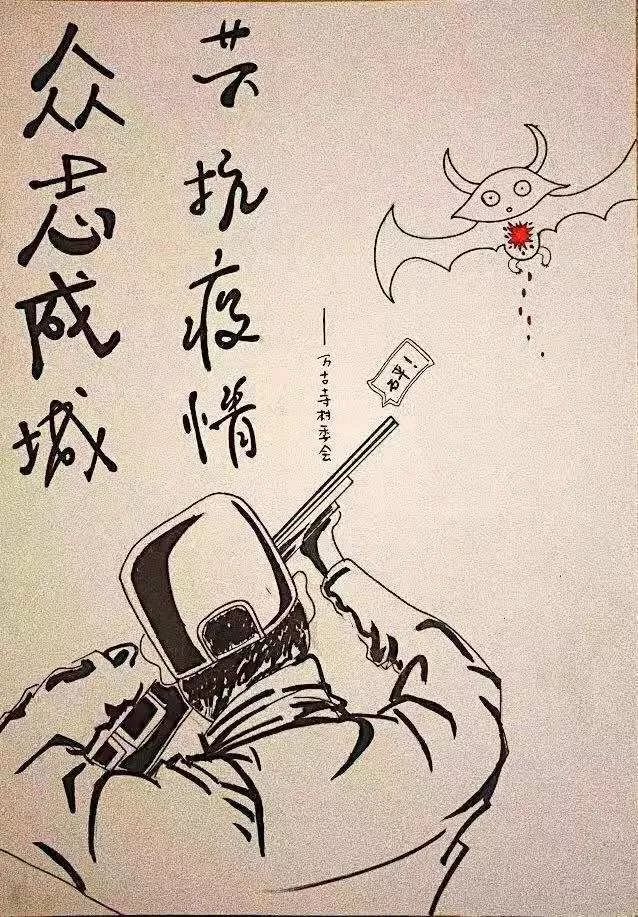 众志成城
共抗疫情
——万古寺村委会
砰!